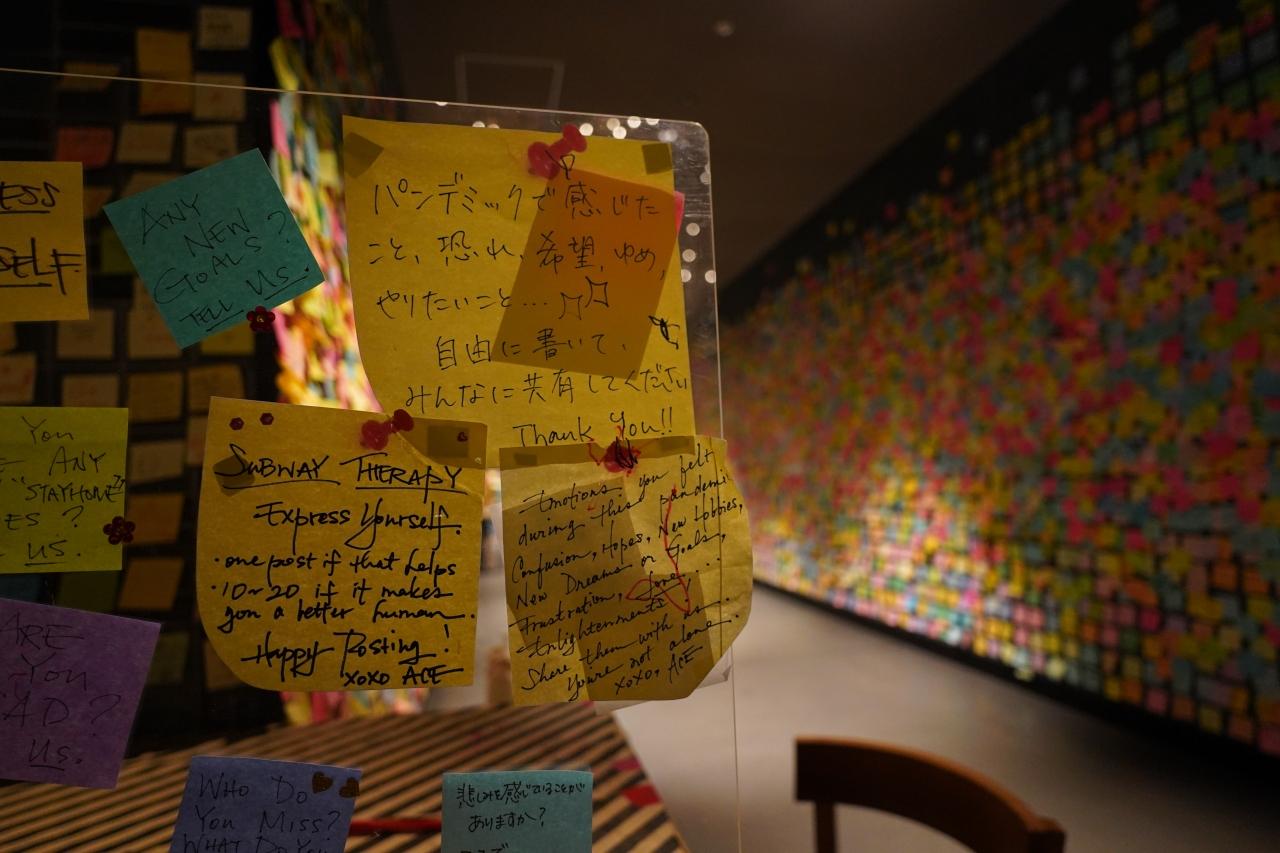 ESS
SELF.
ANY
NEW
GOALS?
TELL US.
パンデミックで感じた
こと、恐れ、希望、ゆめ、
やりたいこと...
自由に書いて、
みんなに共有してください
Thank You!!
YOU
ANY
"STAYHOME"
ES?
US.
SUBWAY THERAPY
Express Yourself.
·one post if that helps
·10~20 if it makes
you a better human.
Happy Posting!
xoxo ACE
Emotions you felt
during this pandemic
Confusion, Hopes, New Hobbies,
New Dreams or Goals,
Frustration,
Enlightenments
Share them with us.
You're not alone.
xoxo, ACE
ARE
YOU
AD?
US.
WHO DO
YOU MISS?
WHAT DO YOU
悲しみを感じていることが
ありますか?